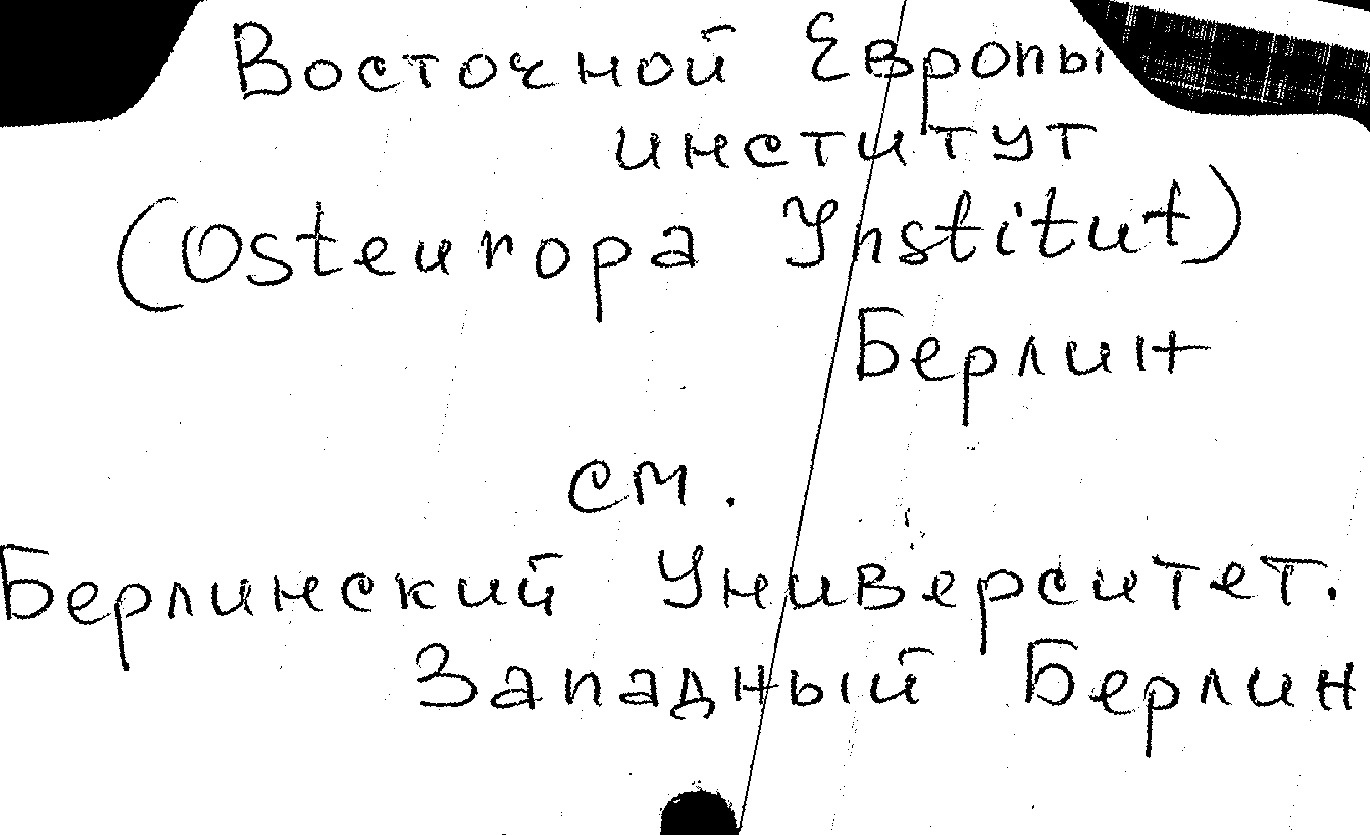 Восточной Европы
институт
(Osteuropa Ynstitut)
Берлин
см.
Берлинский Университет.
Западный Берлин